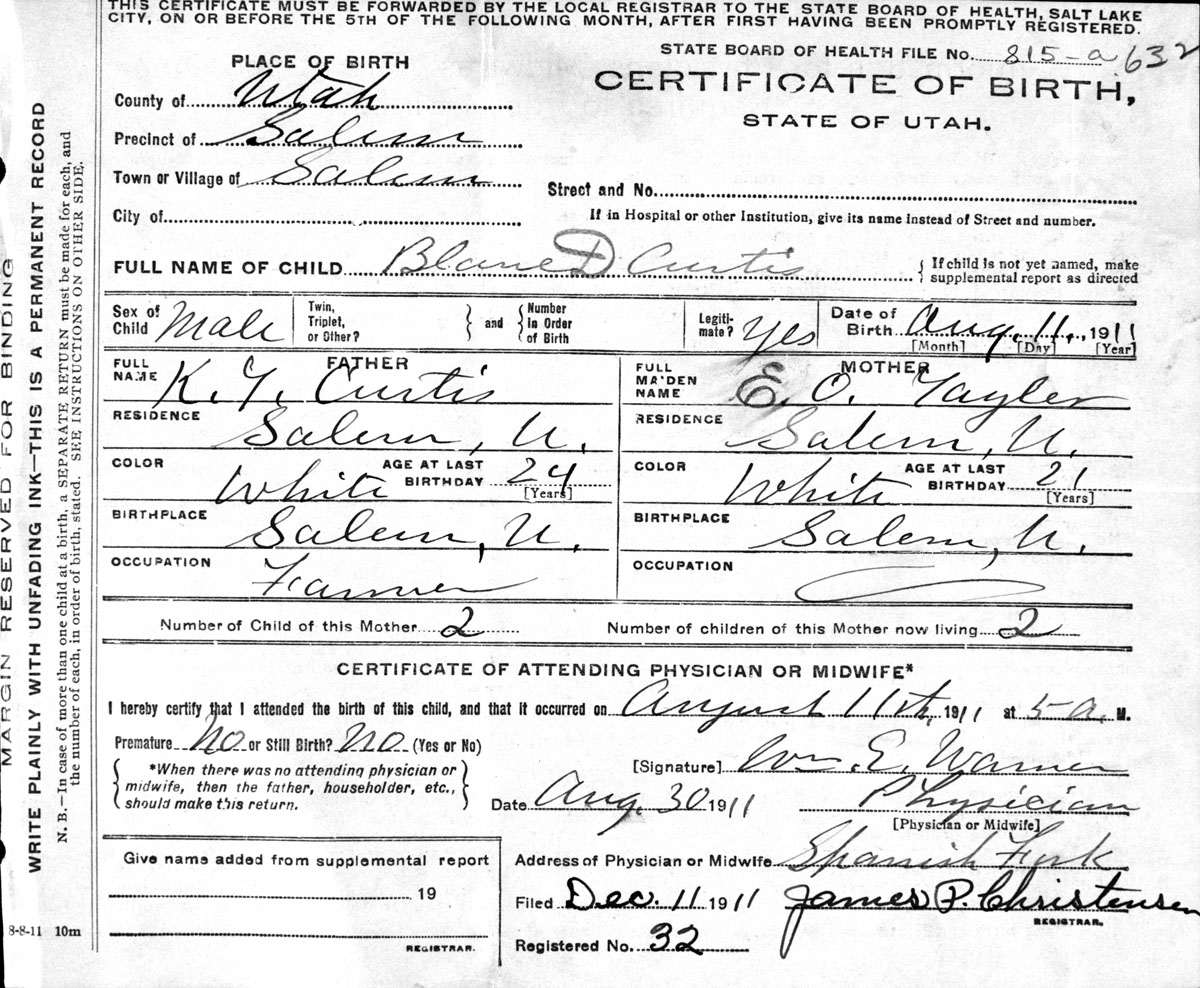 THIS CERTIFICATE MUST BE FORWARDED BY THE LOCAL REGISTRAR TO THE STATE BOARD OF HEALTH, SALT LAKE
CITY, ON OR BEFORE THE 5TH OF THE FOLLOWING MONTH, AFTER FIRST HAVING BEEN PROMPTLY REGISTERED.
STATE BOARD OF HEALTH FILE No. 815-a 632
PLACE OF BIRTH
CERTIFICATE OF BIRTH,
STATE OF UTAH.
County of Utah
Precinct of Salem
Town or Village of Salem
Street and No.
City of
If in Hospital or other Institution, give its name instead of Street and number.
FULL NAME OF CHILD Blane D Curtis
{ If child is not yet named, make
supplemental report as directed
Sex of Child Male
Twin, Triplet, or Other? } and { Number in Order of Birth
Legiti-mate? Yes
Date of Birth Aug. 11, 1911
[Month] [Day] [Year]
FATHER
FULL NAME K. Y. Curtis
RESIDENCE Salem, U.
COLOR White AGE AT LAST BIRTHDAY 24
[Years]
BIRTHPLACE Salem, U.
OCCUPATION Farmer
MOTHER
FULL MAIDEN NAME E. O. Tayler
RESIDENCE Salem, U.
COLOR White AGE AT LAST BIRTHDAY 21
[Years]
BIRTHPLACE Salem, U.
OCCUPATION
Number of Child of this Mother 2 Number of children of this Mother now living 2
CERTIFICATE OF ATTENDING PHYSICIAN OR MIDWIFE*
I hereby certify that I attended the birth of this child, and that it occurred on August 11th, 1911 at 5 a. M.
Premature No or Still Birth? No (Yes or No)
{ *When there was no attending physician or
midwife, then the father, householder, etc.,
should make this return. }
[Signature] Wm. E. Warner
Date Aug. 30 1911 Physician
[Physician or Midwife]
Address of Physician or Midwife Spanish Fork
Filed Dec. 11 1911 James P. Christensen
REGISTRAR.
Registered No. 32
Give name added from supplemental report
19
REGISTRAR.
8-8-11 10m
MARGIN RESERVED FOR BINDING
WRITE PLAINLY WITH UNFADING INK—THIS IS A PERMANENT RECORD
N. B.—In case of more than one child at a birth, a SEPARATE RETURN must be made for each, and
the number of each, in order of birth, stated. SEE INSTRUCTIONS ON OTHER SIDE.